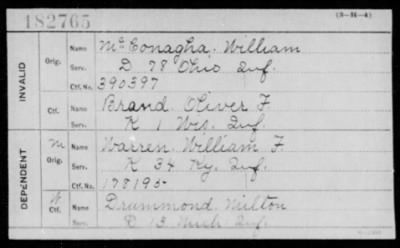 182765
(3-86-4)
INVALID
Orig.
Name McConagha, William
Serv. D 78 Ohio Inf.
Ctf. No. 390397
Ctf.
Name Brand, Oliver F.
Serv. K 1 Wis. Inf.
DEPENDENT
M
Orig.
Name Warren, William F.
Serv. K 34 Ky. Inf.
Ctf. No. 178195
Ctf.
Name Drummond, Milton
Serv. D 13 Mich. Inf.